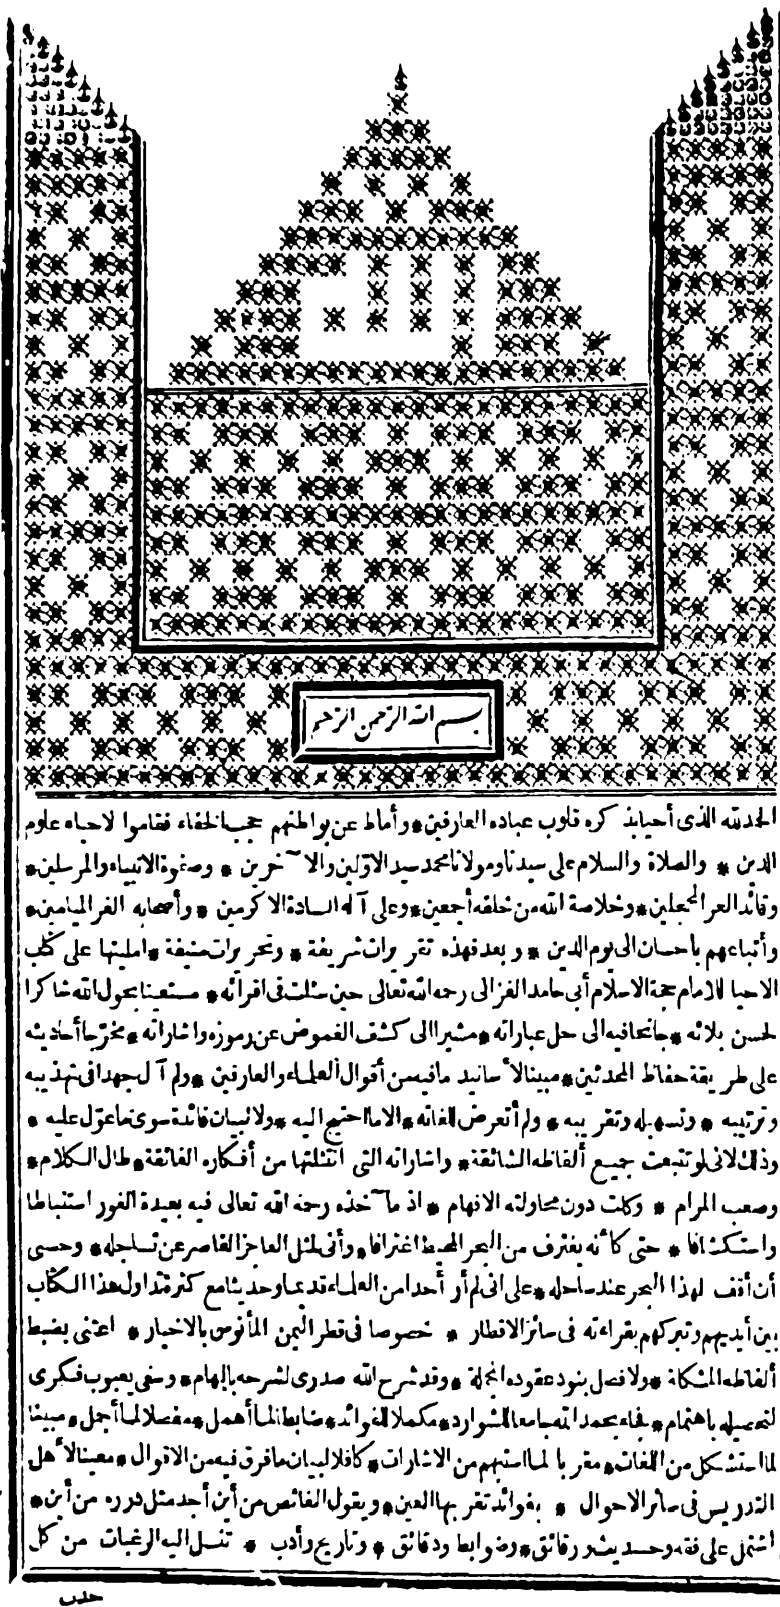 بسم الله الرحمن الرحيم
الحمد لله الذى أحيا بذكره قلوب عباده العارفين * وأماط عن بواطنهم حجب الخفاء فقاموا لاحياء علوم
الدين * والصلاة والسلام على سيدنا ومولانا محمد سيد الاولين والآخرين * وصفوة الانبياء والمرسلين *
وقائد الغر المحجلين * وخلاصة الله من خلقه أجمعين * وعلى آله السادة الاكرمين * وأصحابه الغر الميامين *
وأتباعهم باحسان الى يوم الدين * وبعد فهذه تقريرات شريفة * وتحريرات منيفة * امليتها على كتاب
الاحيا للامام حجة الاسلام أبى حامد الغزالى رحمه الله تعالى حين سئلت فى اقرائه * مستعينا بحول الله شاكرا
لحسن بلائه * جانحا فيه الى حل عباراته * مشيرا الى كشف الغموض عن رموزه واشاراته * مخرجا أحاديثه
على طريقة حفاظ المحدثين * مبينا لأسانيد مافيه من أقوال العلماء والعارفين * ولم آل جهدا فى تهذيبه
وترتيبه * وتسهيله وتقريبه * ولم أتعرض للغاته * الا ما احتيج اليه * ولا لبيان فائدة سوى ما عول عليه *
وذلك لانى لو تتبعت جميع ألفاظه الشائقة * واشاراته التى انتثلتها من أفكاره الفائقة * طال الكلام *
وصعب المرام * وكلت دون محاولته الافهام * اذ مآخذه رحمه الله تعالى فيه بعيدة الغور استنباطا
واستكشافا * حتى كأنه يغترف من البحر المحيط اغترافا * وأنى لمثل العاجز القاصر عن تساجله * وحسبى
أن أقف لهذا البحر عند ساحله * على انى لم أر أحدا من العلماء قديما وحديثا مع كثرة تداول هذا الكتاب
بين أيديهم وتبركهم بقراءته فى سائر الاقطار * خصوصا فى قطر اليمن المأنوس بالاخيار * اعتنى بضبط
ألفاظه المشكلة * ولا فصل بنود عقوده المجملة * وقد شرح الله صدرى لشرحه بالهام * وسقى يعبوب فكرى
لتحصيله باهتمام * فجاء بحمد الله جامعا للشوارد * مكملا للفوائد * ضابطا لما أهمل * مفصلا لما أجمل * مبينا
لما استشكل من اللغات * مقربا لما استبهم من الاشارات * كافلا لبيان ما فرق فيه من الاقوال * معينا لأهل
التدريس فى سائر الاحوال * بفوائد تقر بها العين * ويقول الغائص من أين أجد مثل درره من أين *
اشتمل على فقه وحديث ورقائق * وضوابط ودقائق * وتاريخ وأدب * تنسل اليه الرغبات من كل
حدب